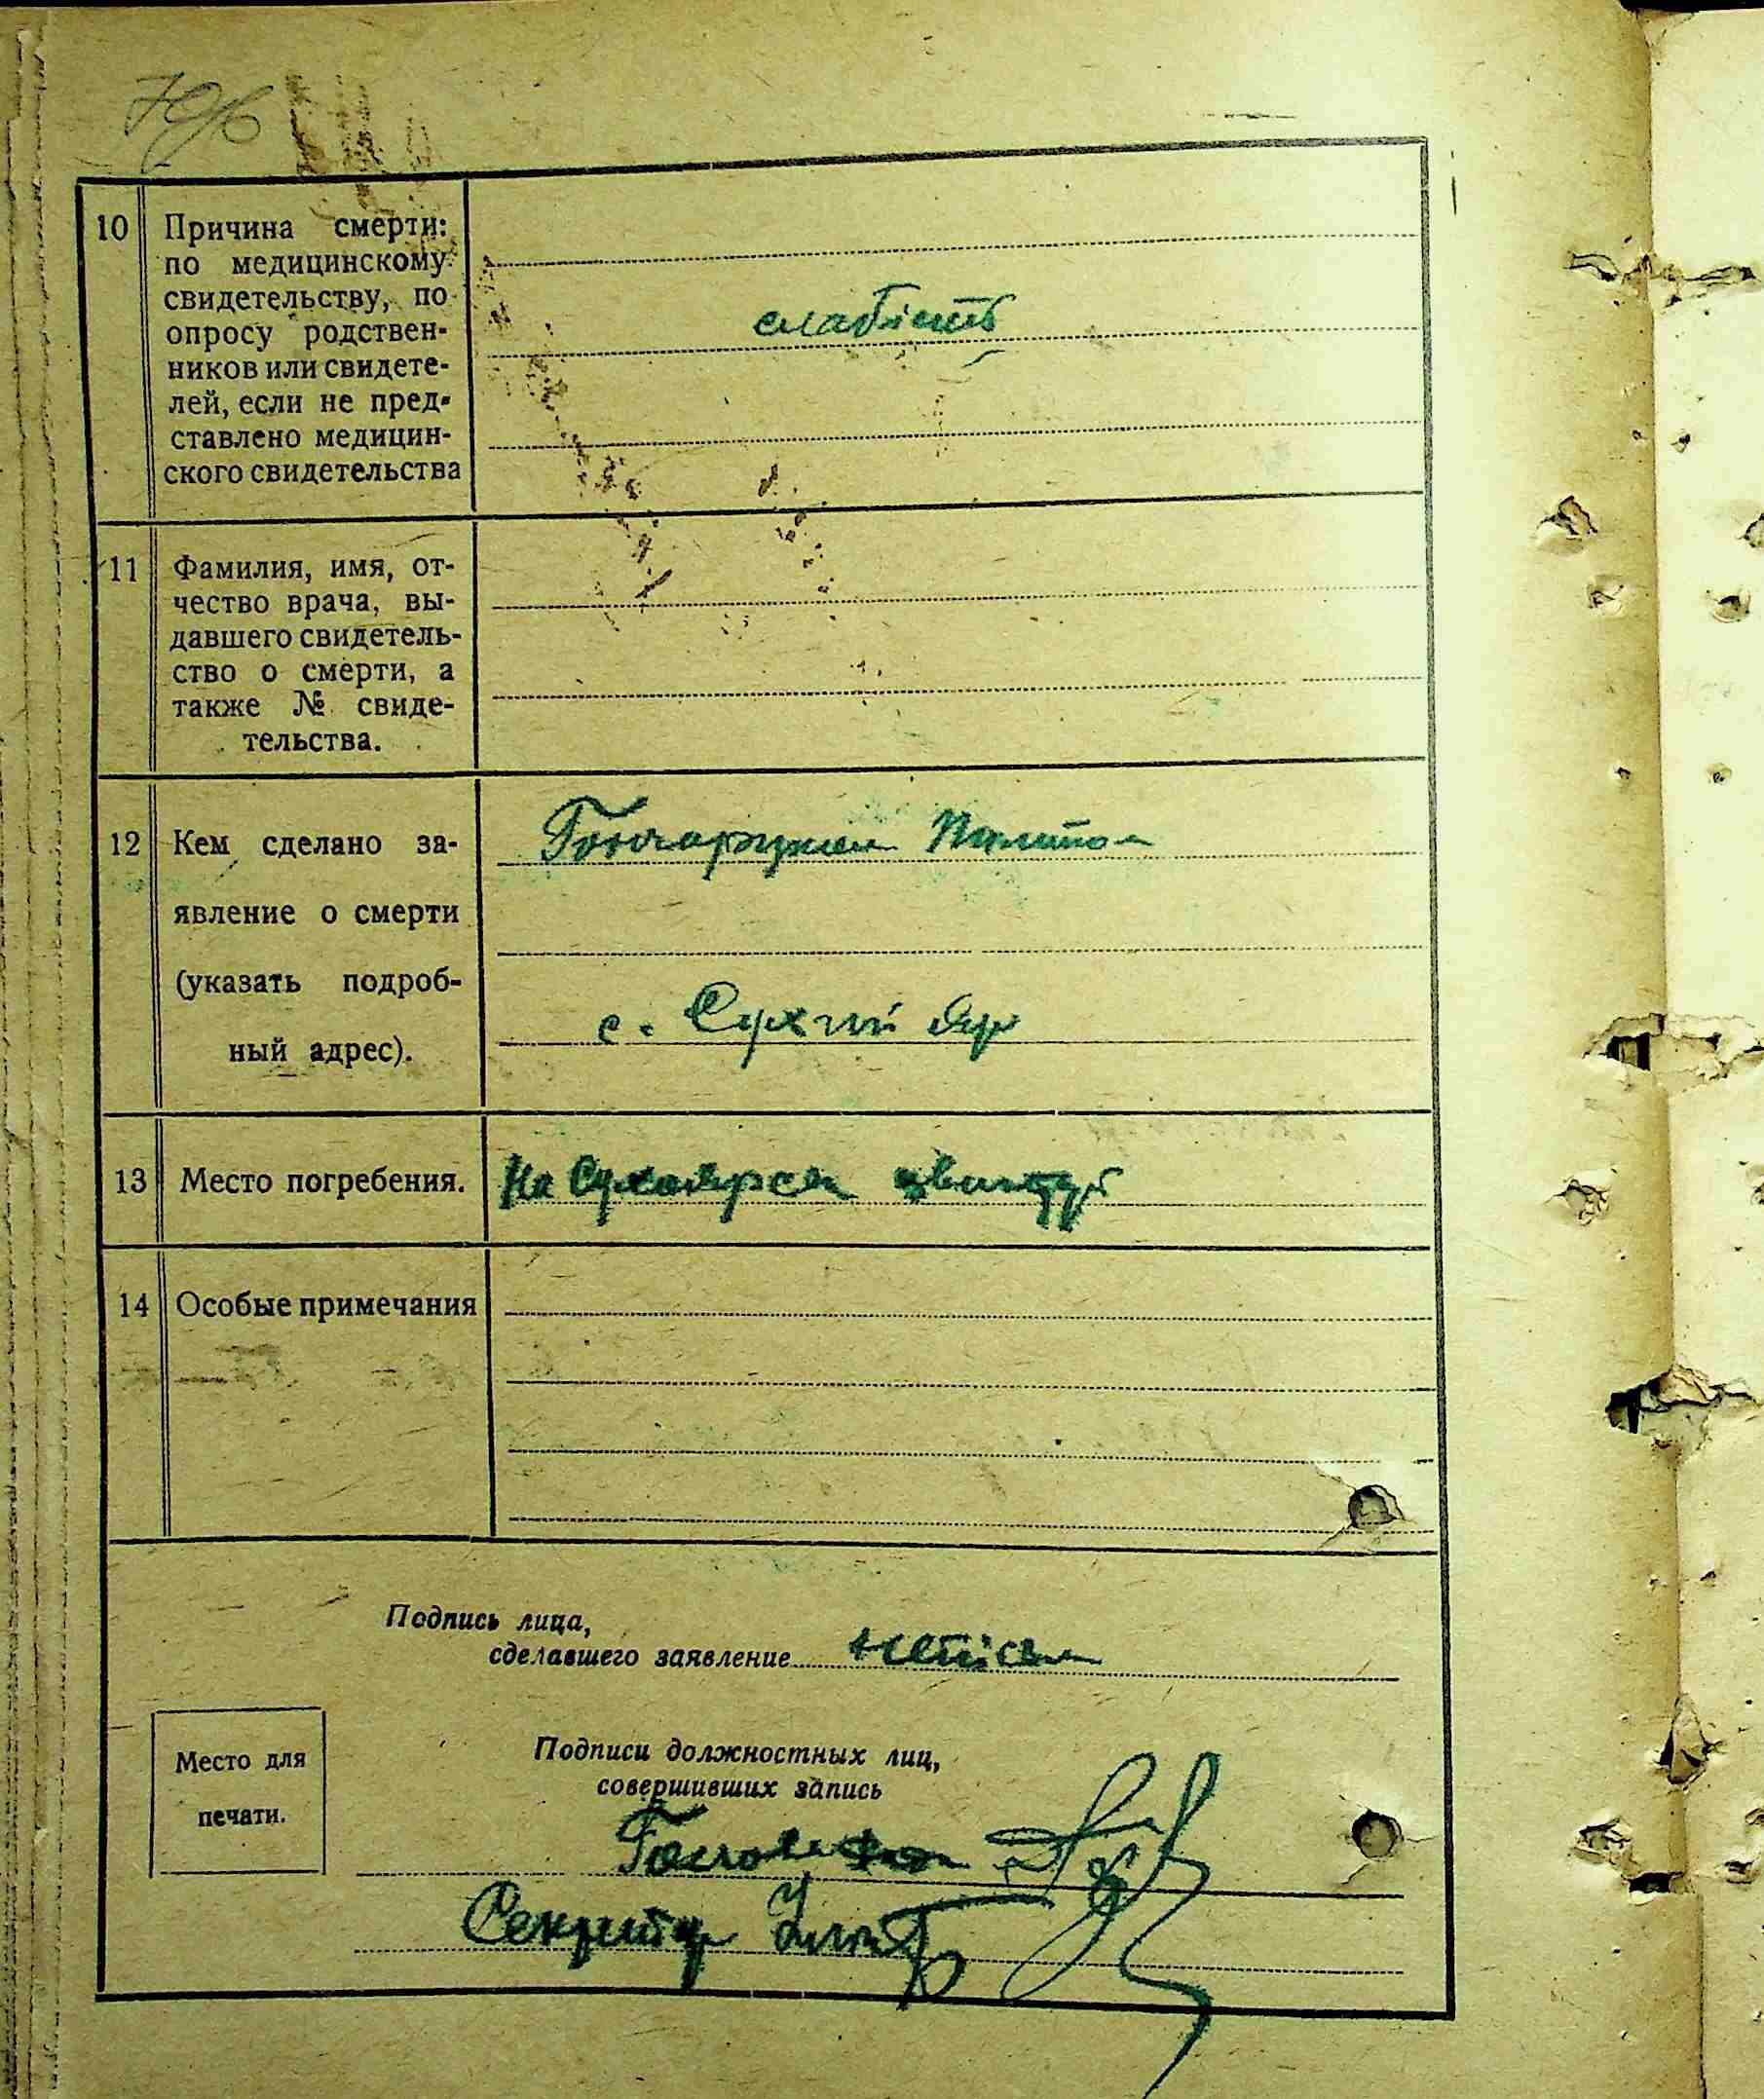 10 Причина смерти:
по медицинскому
свидетельству, по
опросу родствен-
ников или свидете-
лей, если не пред-
ставлено медицин-
ского свидетельства
слабість
11 Фамилия, имя, от-
чество врача, вы-
давшего свидетель-
ство о смерти, а
также № свиде-
тельства.
12 Кем сделано за-
явление о смерти
(указать подроб-
ный адрес).
с. Сухий Яр
13 Место погребения.
На
14 Особые примечания
Подпись лица,
сделавшего заявление
Место для
печати.
Подписи должностных лиц,
совершивших запись
Секретар